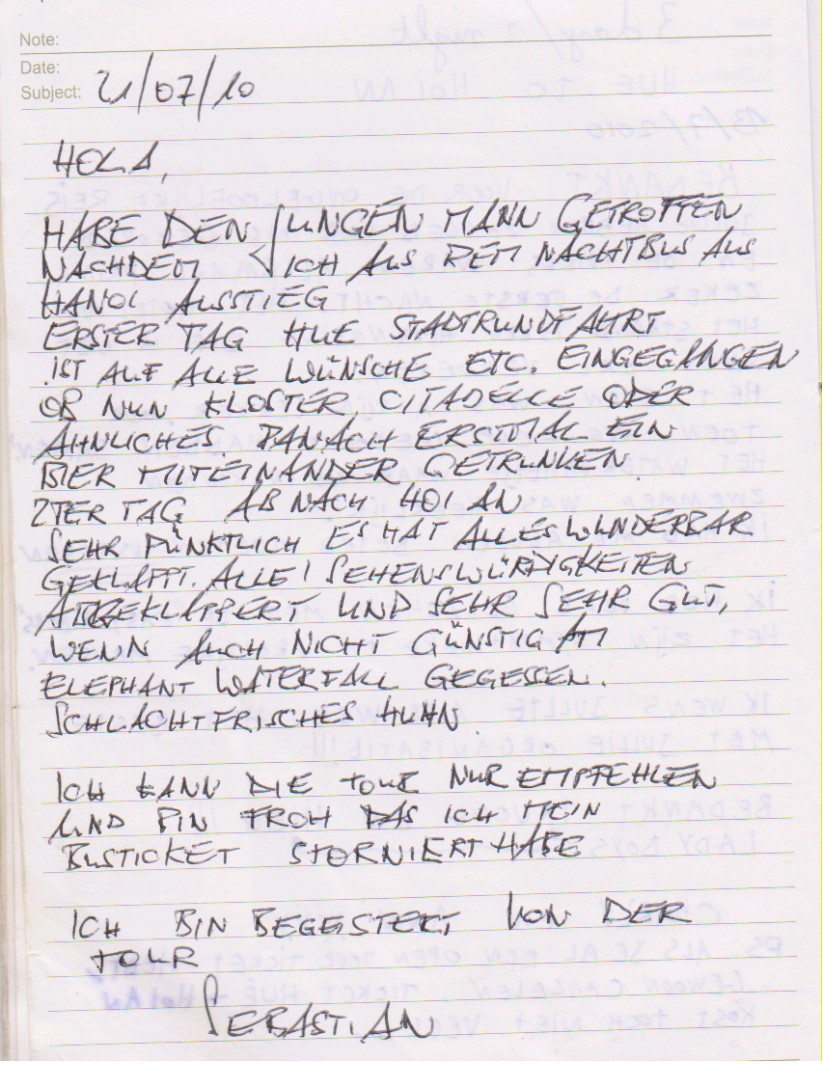 Note:
Date:
Subject: 21/07/10
HOLA,
HABE DEN JUNGEN MANN GETROFFEN
NACHDEM ICH AUS DEM NACHTBUS AUS
HANOI AUSSTIEG
ERSTER TAG HUE STADTRUNDFAHRT
IST AUF ALLE WÜNSCHE ETC. EINGEGANGEN
OB NUN KLOSTER, CITADELLE ODER
ÄHNLICHES. DANACH ERSTMAL EIN
BIER MITEINANDER GETRUNKEN.
2TER TAG AB NACH HOI AN
SEHR PÜNKTLICH ES HAT ALLES WUNDERBAR
GEKLAPPT. ALLE SEHENSWÜRDIGKEITEN
ABGEKLAPPERT UND SEHR SEHR GUT,
WENN AUCH NICHT GÜNSTIG AM
ELEPHANT WATERFALL GEGESSEN.
SCHLACHTFRISCHES HUHN.
ICH KANN DIE TOUR NUR EMPFEHLEN
UND BIN FROH DAS ICH MEIN
BUSTICKET STORNIERT HABE
ICH BIN BEGEISTERT VON DER
TOUR
SEBASTIAN